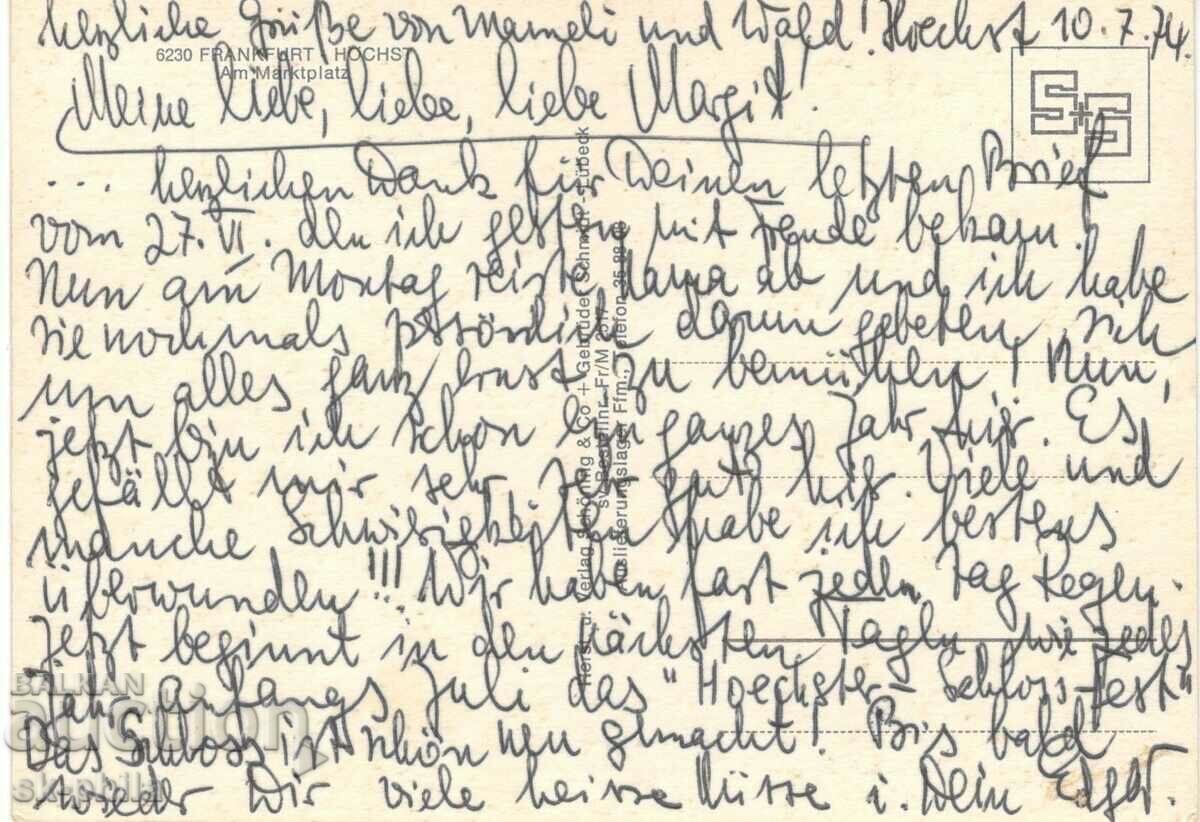 herzliche Grüße von Mameli und Wald! Hoechst 10.7.74.
6230 FRANKFURT HÖCHST
Am Marktplatz
S+G
Meine liebe, liebe, liebe Margit!
... herzlichen Dank für Deinen letzten Brief
vom 27. VI. den ich gestern mit Freude bekam!
Nun am Montag reiste Mama ab und ich habe
sie nochmals persönlich darum gebeten, sich
um alles ganz ernst zu bemühen! Nun,
jetzt bin ich schon ein ganzes Jahr hier. Es
gefällt mir sehr, sehr gut hier. Viele und
manche Schwirigkeiten habe ich bestens
überwunden!!! Wir haben fast jeden Tag Regen.
Jetzt beginnt in den nächsten Tagen wie jedes
Jahr anfangs Juli das "Hoechster-Schloss-Fest"
Das Schloss ist schön neu gemacht! Bis bald
wieder Dir viele heisse Küsse i. Dein
Herst. u. Verlag Schöning & Co + Gebrüder Schmidt - Lübeck
Bestellnr. Fr/M
Auslieferungslager Ffm., Telefon
BALKAN
auction
sk-phila